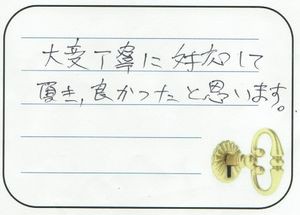 大変丁寧に対応して
頂き、良かったと思います。